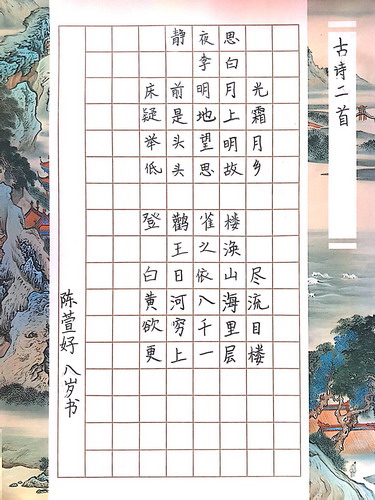 古诗二首
静夜思
李白
床前明月光
疑是地上霜
举头望明月
低头思故乡
登鹳雀楼
王之涣
白日依山尽
黄河入海流
欲穷千里目
更上一层楼
陈萱妤 八岁书